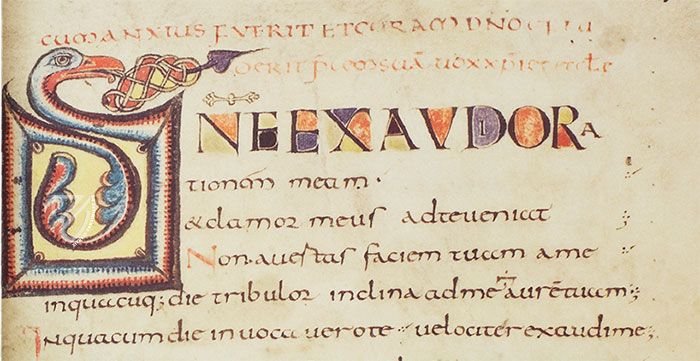 CUM ANXIUS FUERIT ET CORAM DNO
DERIT PCEM SUA VOX XPI ET ECLE
DNE EXAUDI ORA
tionem meam·
& clamor meus ad te veniat
Non avertas faciem tuam a me
inquacuq; die tribulor inclina ad me aurem tuam;
Inquacum die invocavero te velociter exaudi me;